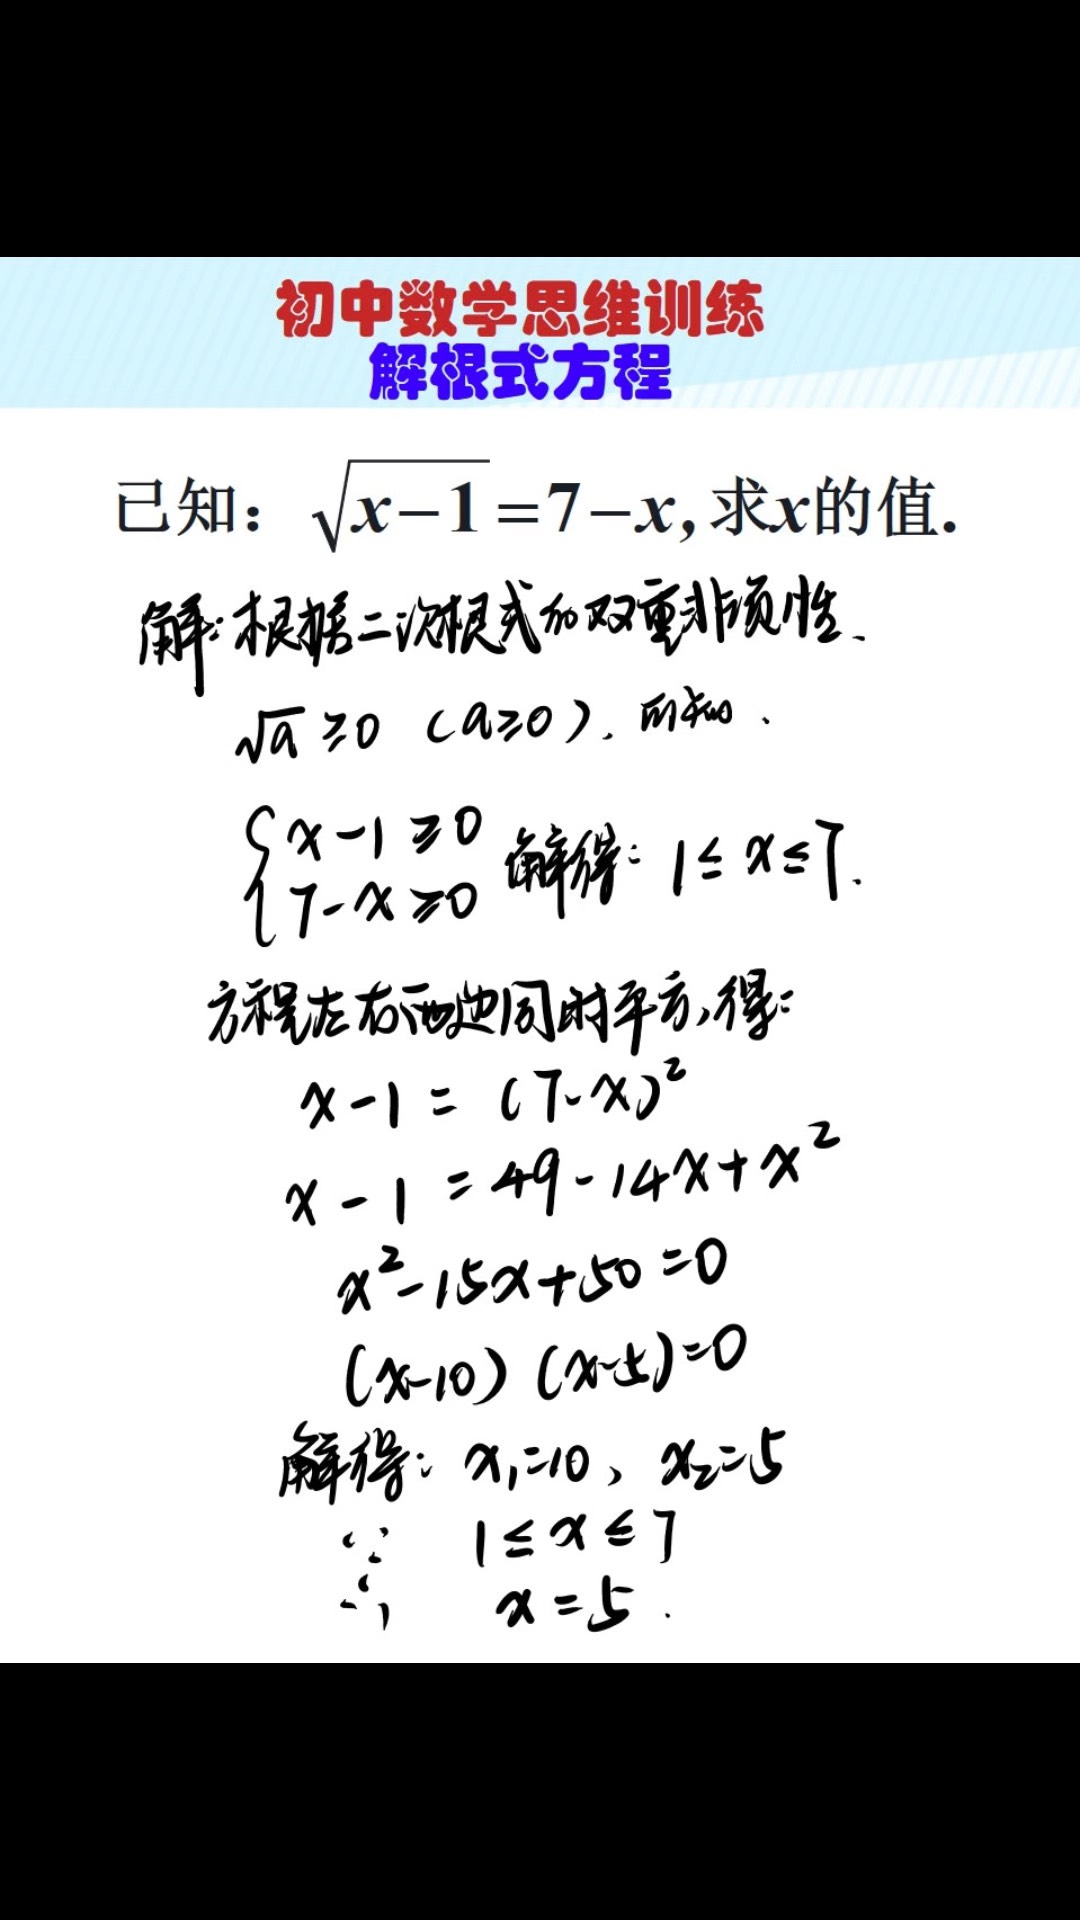 初中数学思维训练
解根式方程
已知：√(x−1)=7−x, 求x的值.
解：根据二次根式的双重非负性、
√a ≥0 （a≥0）. 可知、
{ x-1≥0
{ 7-x≥0 解得：1≤x≤7.
方程左右两边同时平方,得：
x-1 = (7-x)²
x-1 = 49-14x+x²
x²-15x+50=0
(x-10) (x-5)=0
解得：x₁=10、x₂=5
∵ 1≤x≤7
∴ x=5.